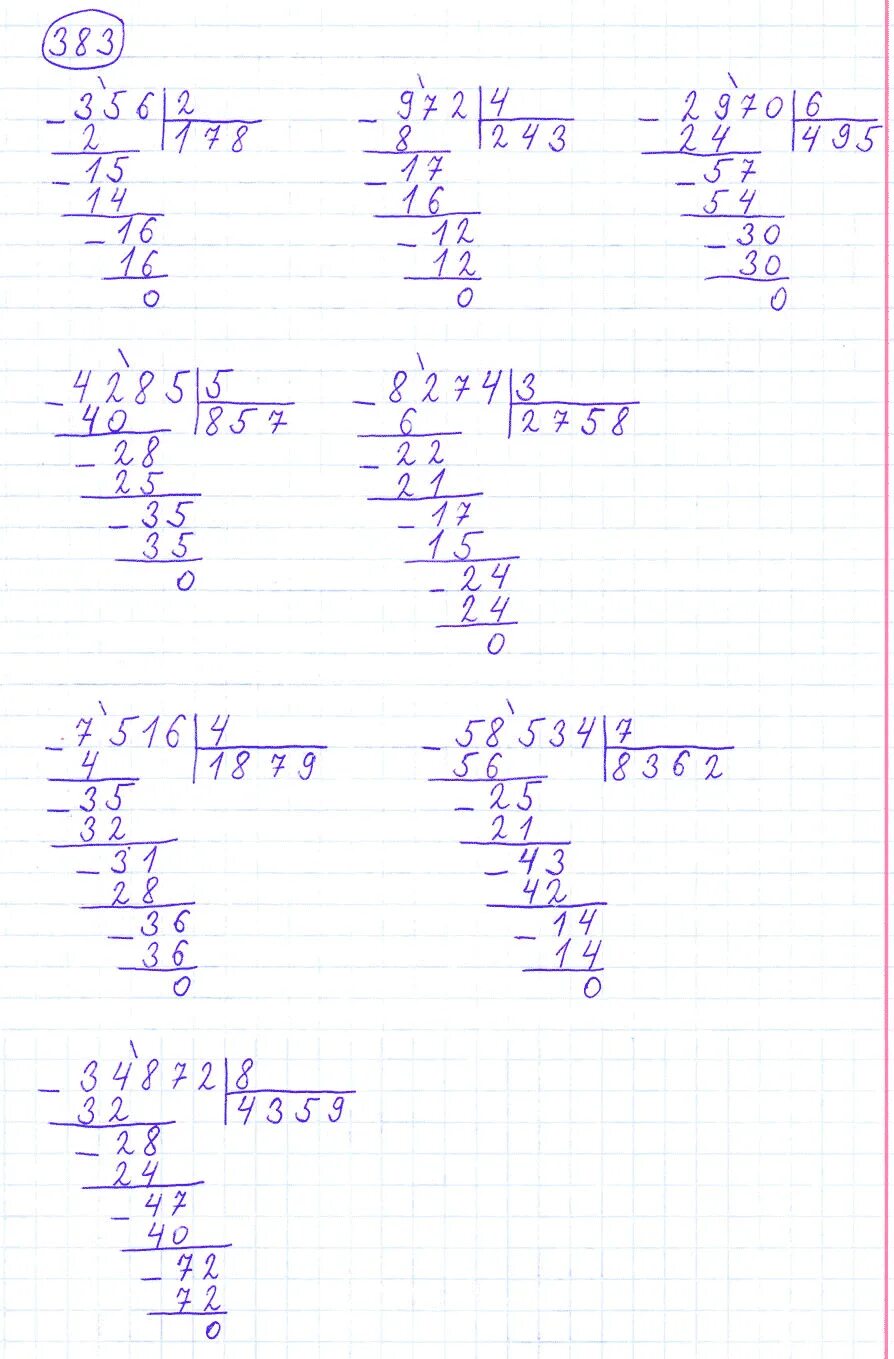 383
- 356 | 2   - 972 | 4   - 2970 | 6
2 | 178   8 | 243   24 | 495
- 15   - 17   - 57
14   16   54
- 16   - 12   - 30
16   12   30
0   0   0
- 4285 | 5   - 8274 | 3
40 | 857   6 | 2758
- 28   - 22
25   21
- 35   - 17
35   15
0   - 24
24
0
- 7516 | 4   - 58534 | 7
4 | 1879   56 | 8362
- 35   - 25
32   21
- 31   - 43
28   42
- 36   - 14
36   14
0   0
- 34872 | 8
32 | 4359
- 28
24
- 47
40
- 72
72
0